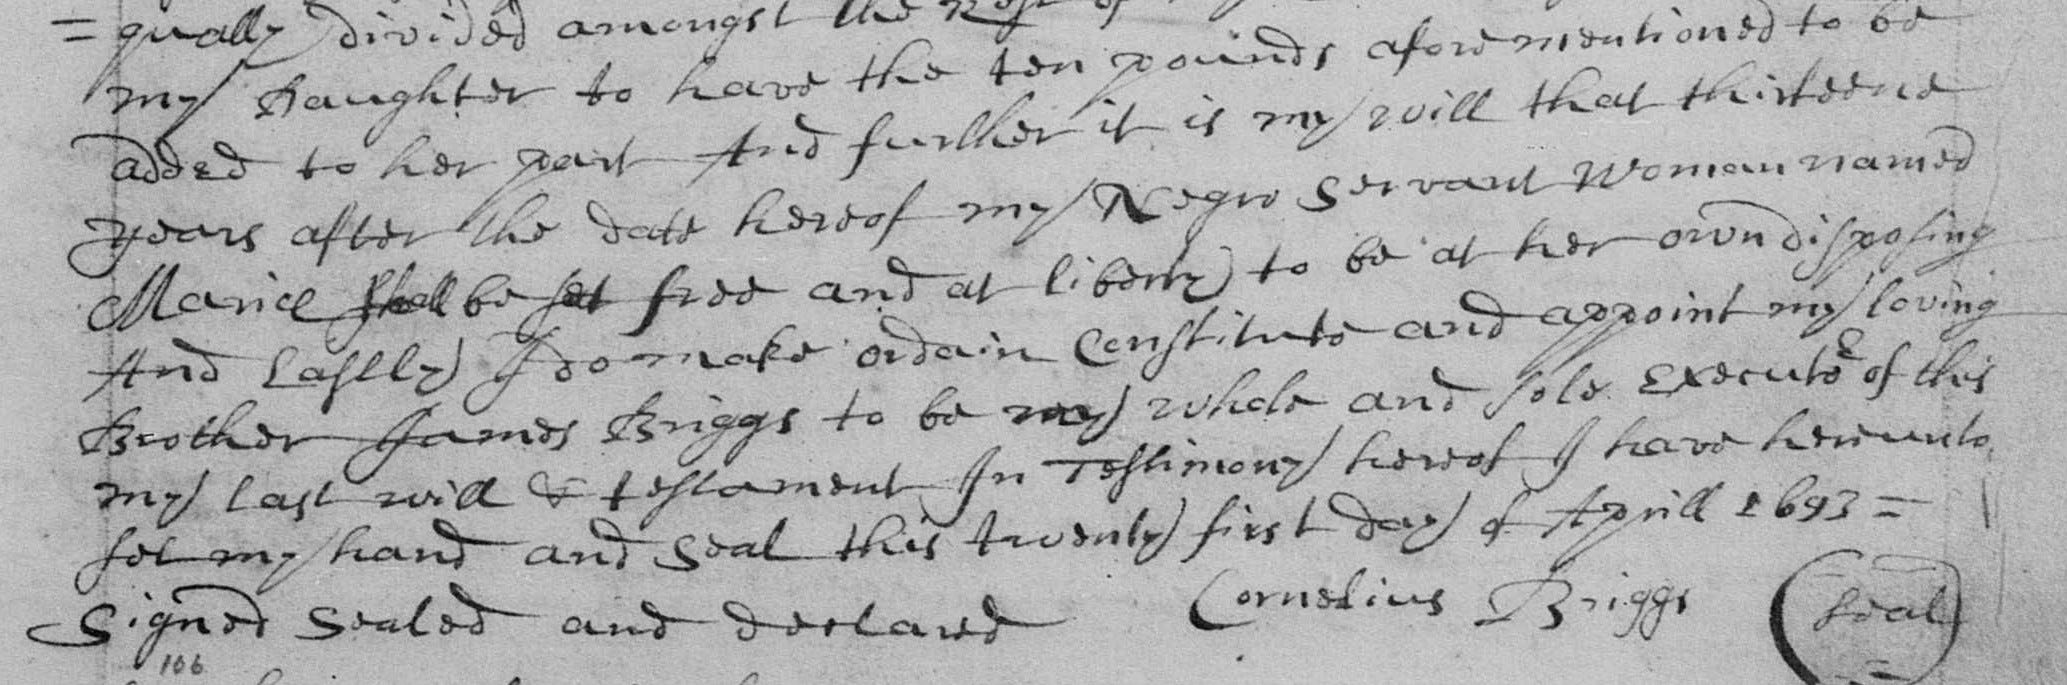 =qually divided amongst the Rest of
my Daughter to have the ten pounds aforementioned to be
added to her part And further it is my will that thirteene
years after the date hereof my Negro Servant Woman named
Marice shall be set free and at liberty to be at her own disposing
And Lastly I do make ordain Constitute and appoint my loving
Brother James Briggs to be my whole and sole Executor of this
my last will & testament In Testimony hereof I have hereunto
set my hand and Seal this twenty first day of Aprill 1693 =
Signed Sealed and declared Cornelius Briggs Seal
106